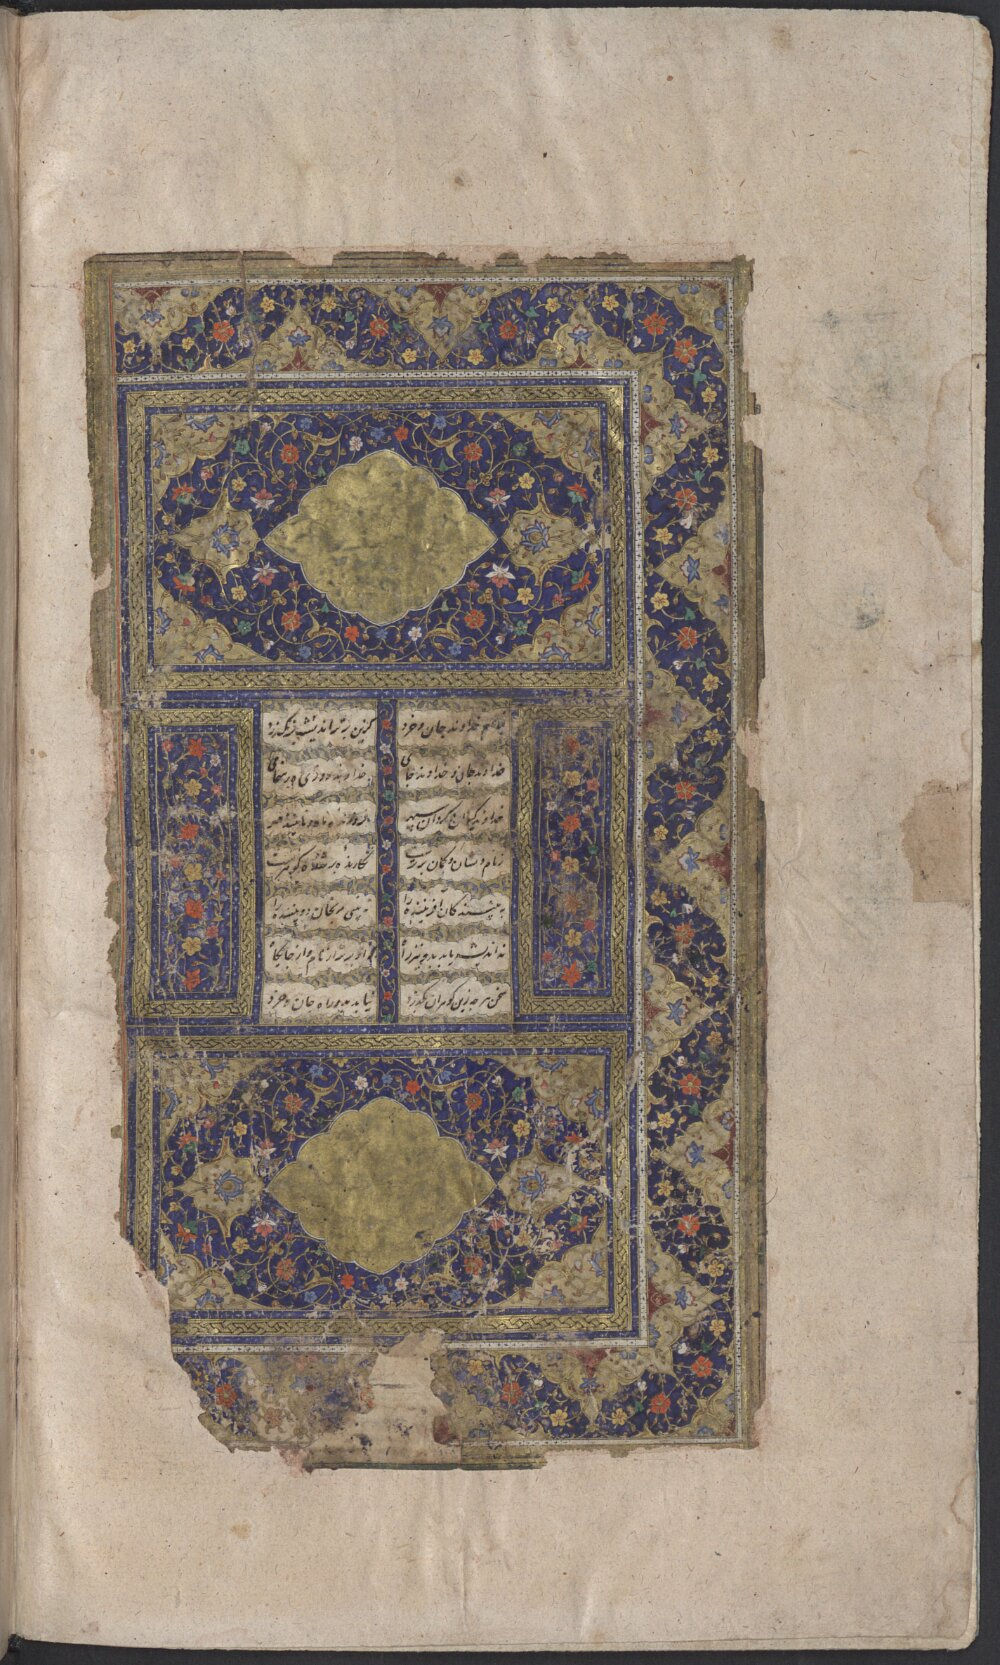 بنام خداوند جان و خرد کزین برتر اندیشه بر نگذرد
خداوند جان و خداوند جای خداوند روزی ده رهنمای
خداوند کیهان و گردان سپهر فروزنده ماه و ناهید و مهر
ز نام و نشان و گمان برترست نگارنده بر شده گوهرست
ببینندگان آفریننده را نبینی مرنجان دو بیننده را
نه اندیشه یابد بدو نیز راه که او برتر از نام و از جایگاه
سخن هر چه زین گوهران بگذرد نیابد بدو راه جان و خرد